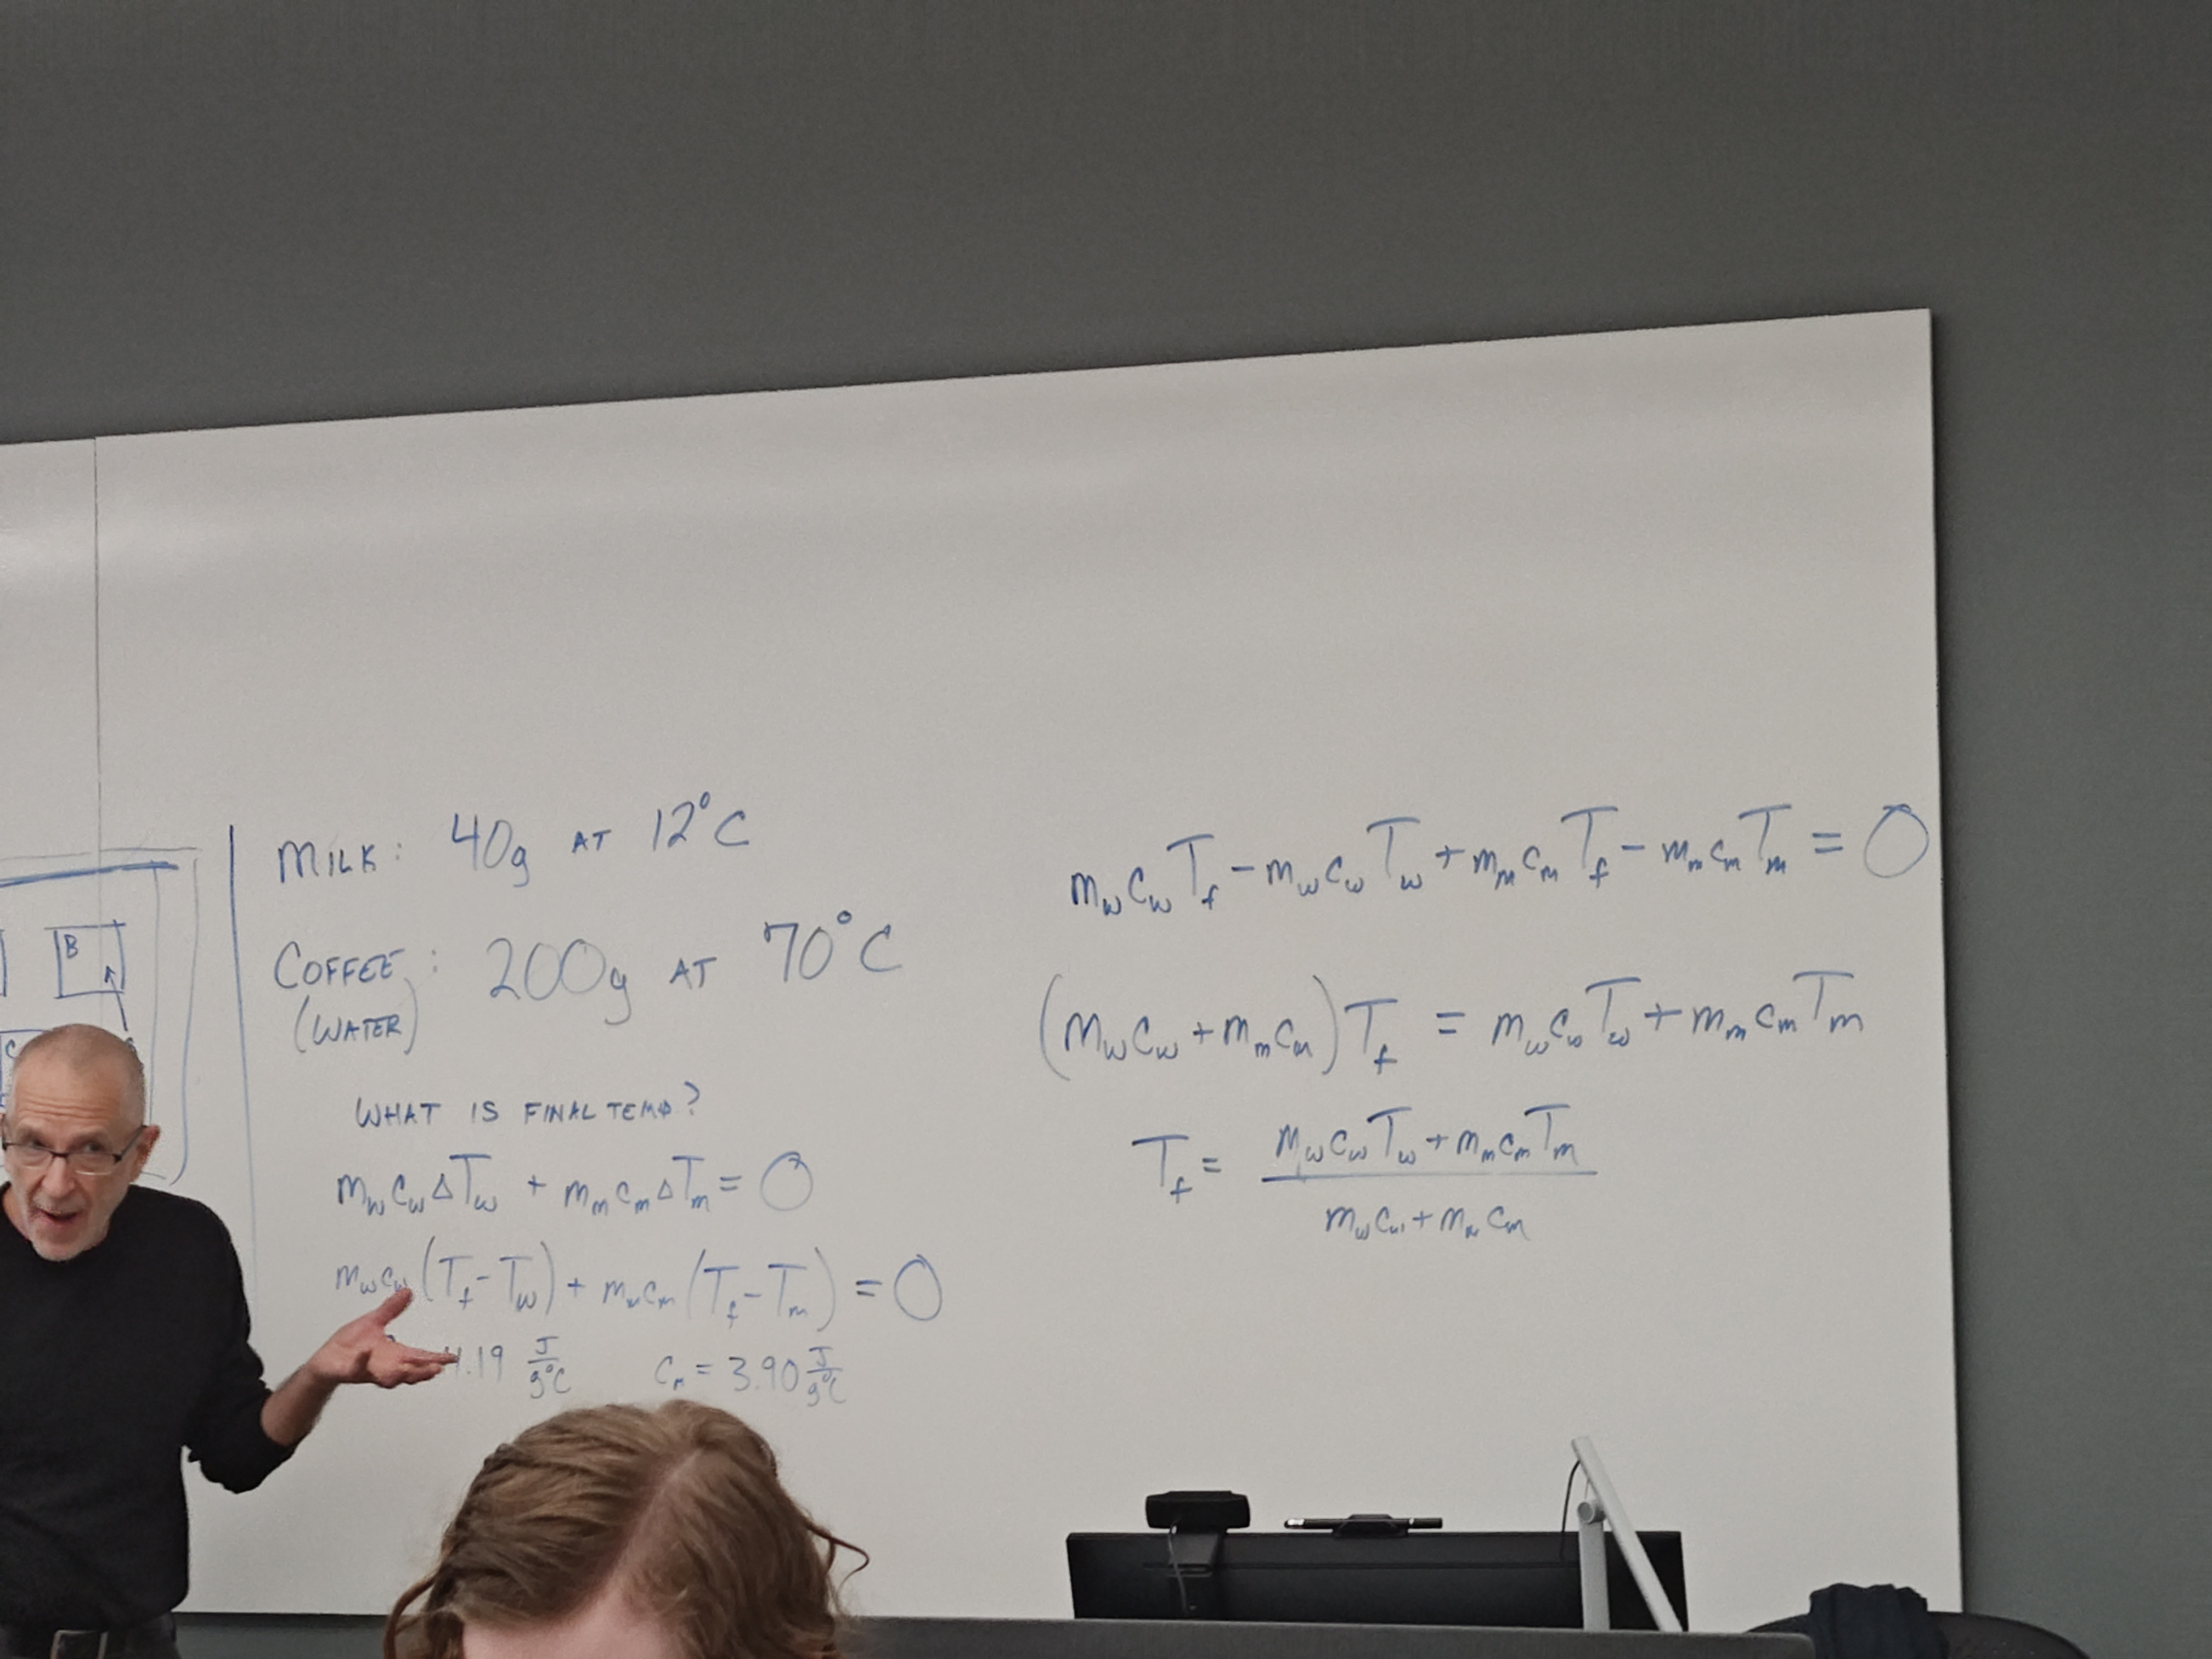 B
C
MILK: 40g AT 12°C
COFFEE: 200g AT 70°C
(WATER)
WHAT IS FINAL TEMP?
m_w c_w ΔT_w + m_m c_m ΔT_m = 0
m_w c_w (T_f - T_w) + m_m c_m (T_f - T_m) = 0
4.19 J/g°C c_m = 3.90 J/g°C
m_w c_w T_f - m_w c_w T_w + m_m c_m T_f - m_m c_m T_m = 0
(m_w c_w + m_m c_m) T_f = m_w c_w T_w + m_m c_m T_m
T_f = (m_w c_w T_w + m_m c_m T_m) / (m_w c_w + m_m c_m)